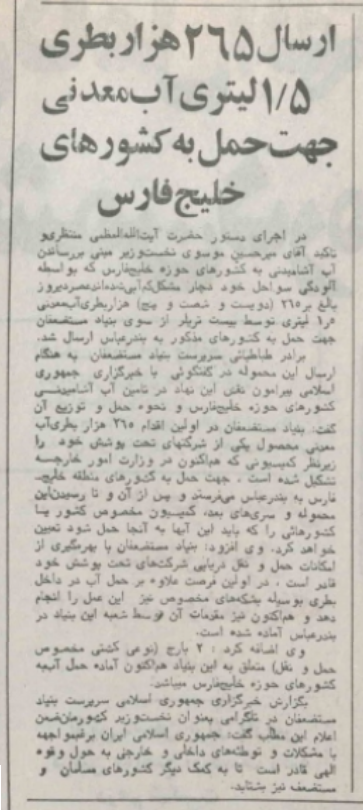 ارسال ۲۶۵ هزار بطری
۱/۵ لیتری آب معدنی
جهت حمل به کشورهای
خلیج فارس
در اجرای دستور حضرت آیت‌الله‌العظمی منتظری و
تاکید آقای میرحسین موسوی نخست‌وزیر مبنی بر رساندن
آب آشامیدنی به کشورهای حوزه خلیج‌فارس که بواسطه
آلودگی سواحل خود دچار مشکل کم‌آبی شده‌اند عصر دیروز
بالغ بر ۲۶۵ (دویست و شصت و پنج) هزار بطری آب‌معدنی
۱/۵ لیتری توسط بیست تریلر از سوی بنیاد مستضعفان
جهت حمل به کشورهای مذکور به بندرعباس ارسال شد.
برادر طباطبائی سرپرست بنیاد مستضعفان به هنگام
ارسال این محموله در گفتگوئی با خبرگزاری جمهوری
اسلامی پیرامون نقش این نهاد در تامین آب آشامیدنی
کشورهای حوزه خلیج‌فارس و نحوه حمل و توزیع آن
گفت: بنیاد مستضعفان در اولین اقدام ۲۶۵ هزار بطری آب
معدنی محصول یکی از شرکتهای تحت پوشش خود را
زیرنظر کمیسیونی که هم‌اکنون در وزارت امور خارجه
تشکیل شده است، جهت حمل به کشورهای منطقه خلیج‌
فارس به بندرعباس می‌فرستد و پس از آن و تا رسیدن این
محموله و سری‌های بعد، کمیسیون مخصوص کشور یا
کشورهائی را که باید این آبها به آنجا حمل شود تعیین
خواهد کرد. وی افزود: بنیاد مستضعفان با بهره‌گیری از
امکانات حمل و نقل دریایی شرکت‌های تحت پوشش خود
قادر است، در اولین فرصت علاوه بر حمل آب در داخل
بطری بوسیله بشکه‌های مخصوص نیز این عمل را انجام
دهد و هم‌اکنون نیز مقدمات آن توسط شعبه این بنیاد در
بندرعباس آماده شده است.
وی اضافه کرد: ۲ بارج (نوعی کشتی مخصوص
حمل و نقل) متعلق به این بنیاد هم‌اکنون آماده حمل آب به
کشورهای حوزه خلیج‌فارس میباشد.
بگزارش خبرگزاری جمهوری اسلامی سرپرست بنیاد
مستضعفان در تلگرامی بعنوان نخست‌وزیر کشورمان ضمن
اعلام این مطلب گفت: جمهوری اسلامی ایران برغم مواجهه
با مشکلات و توطئه‌های داخلی و خارجی به حول و قوه
الهی قادر است تا به کمک دیگر کشورهای مسلمان و
مستضعف نیز بشتابد.